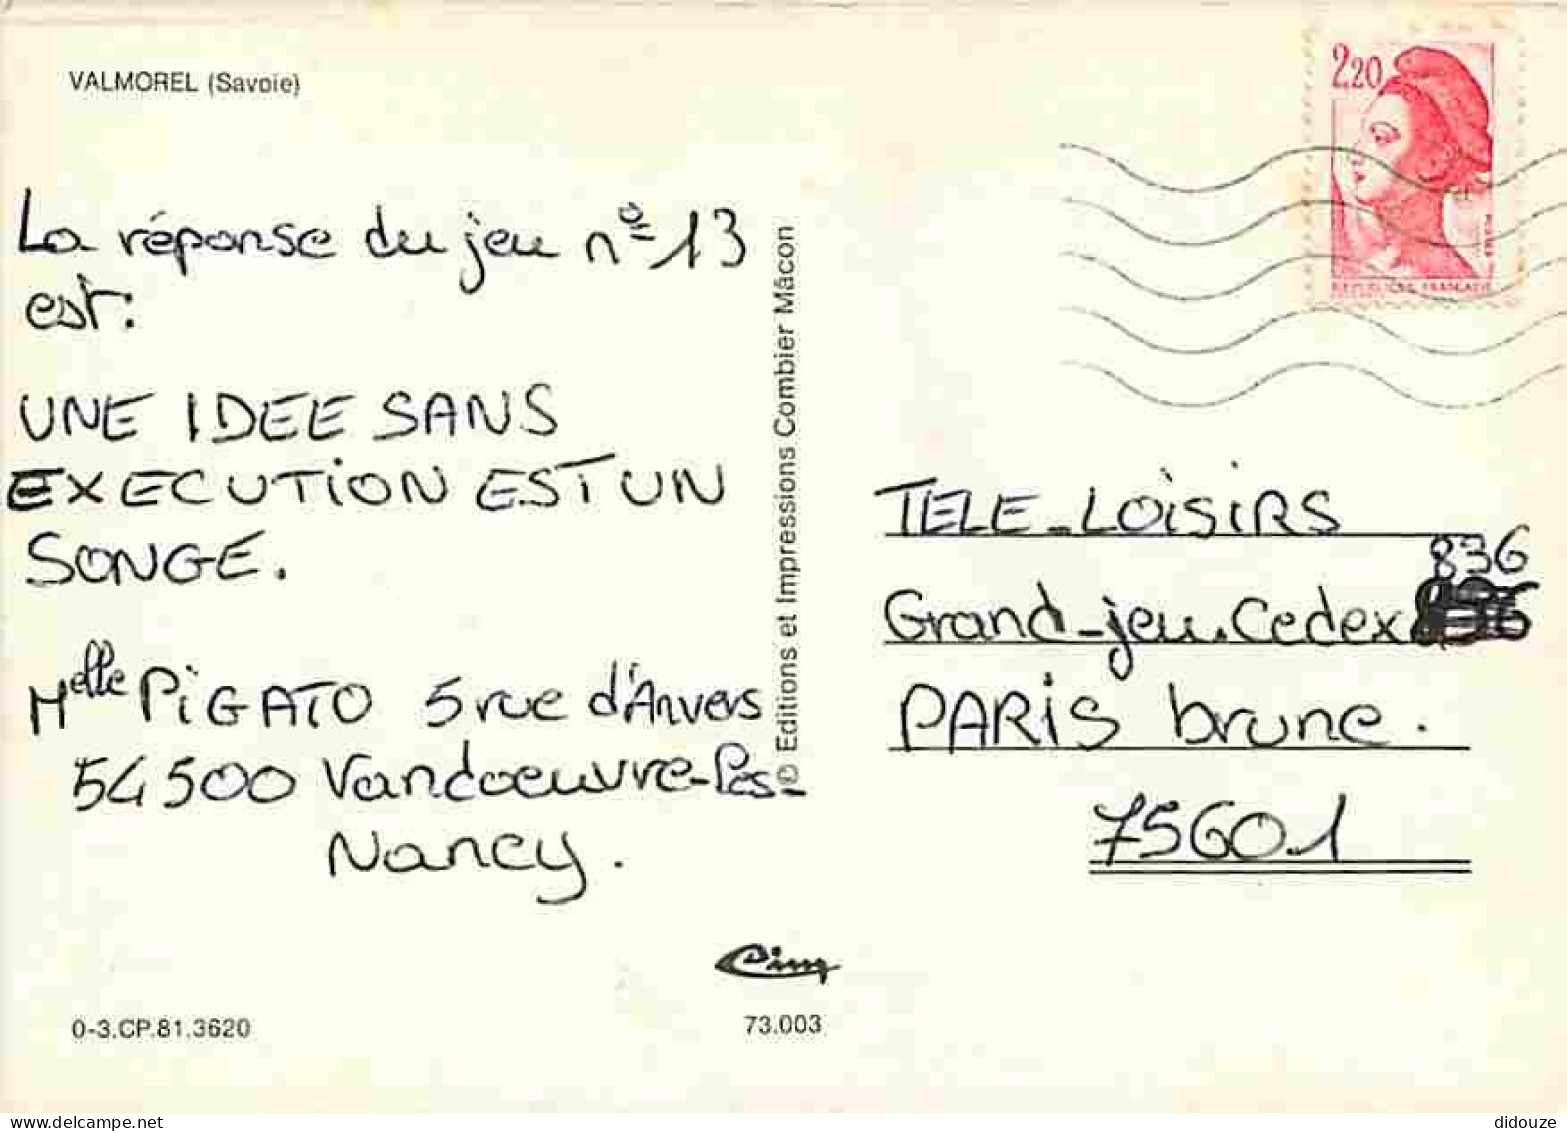 VALMOREL (Savoie)
La réponse du jeu nº 13
est:
UNE IDEE SANS
EXECUTION EST UN
SONGE.
Melle PIGATO 5 rue d'Anvers
54500 Vandoeuvre-les-
Nancy.
© Editions et Impressions Combier Mâcon
2,20
REPUBLIQUE FRANÇAISE
TELE-LOISIRS
836
Grand-jeu. Cedex
PARIS brune.
75601
Cim
0-3.CP.81.3620
73.003
delcampe.net
didouze